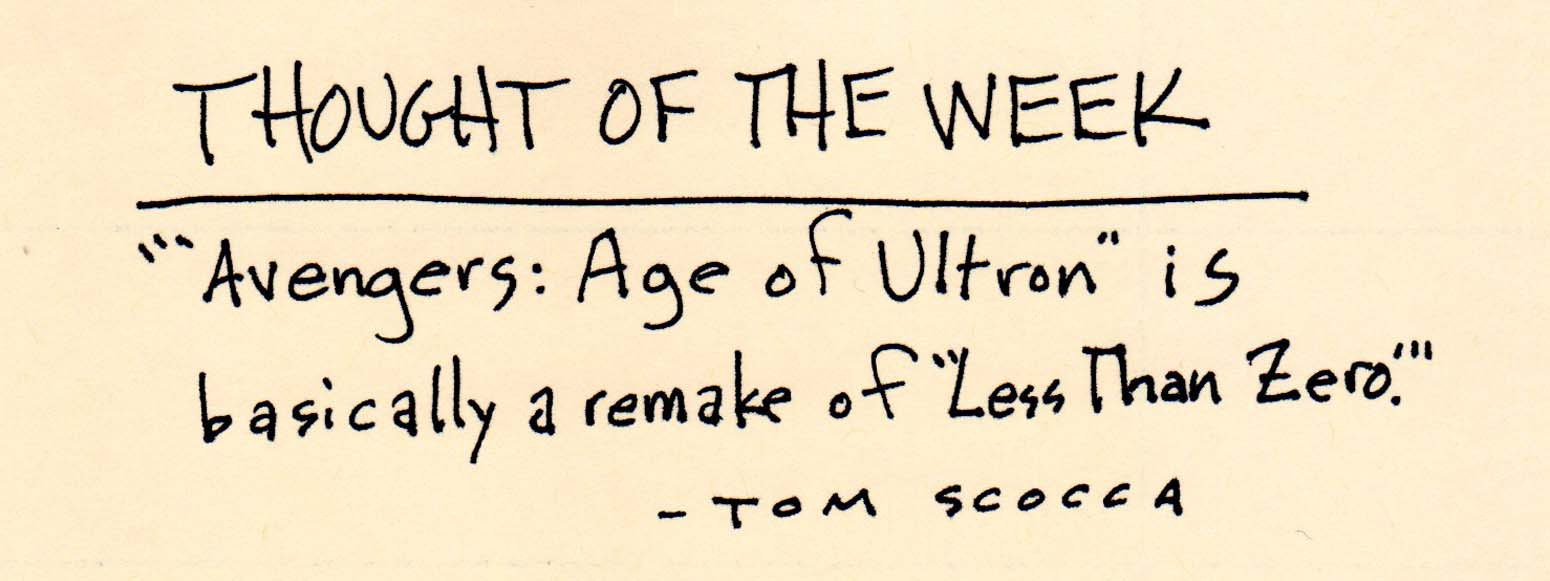 THOUGHT OF THE WEEK
"'"Avengers: Age of Ultron" is
basically a remake of "Less Than Zero."'"
- TOM SCOCCA